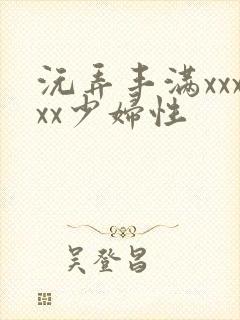 沅弄丰满xxx
xx少妇性
吴登昌